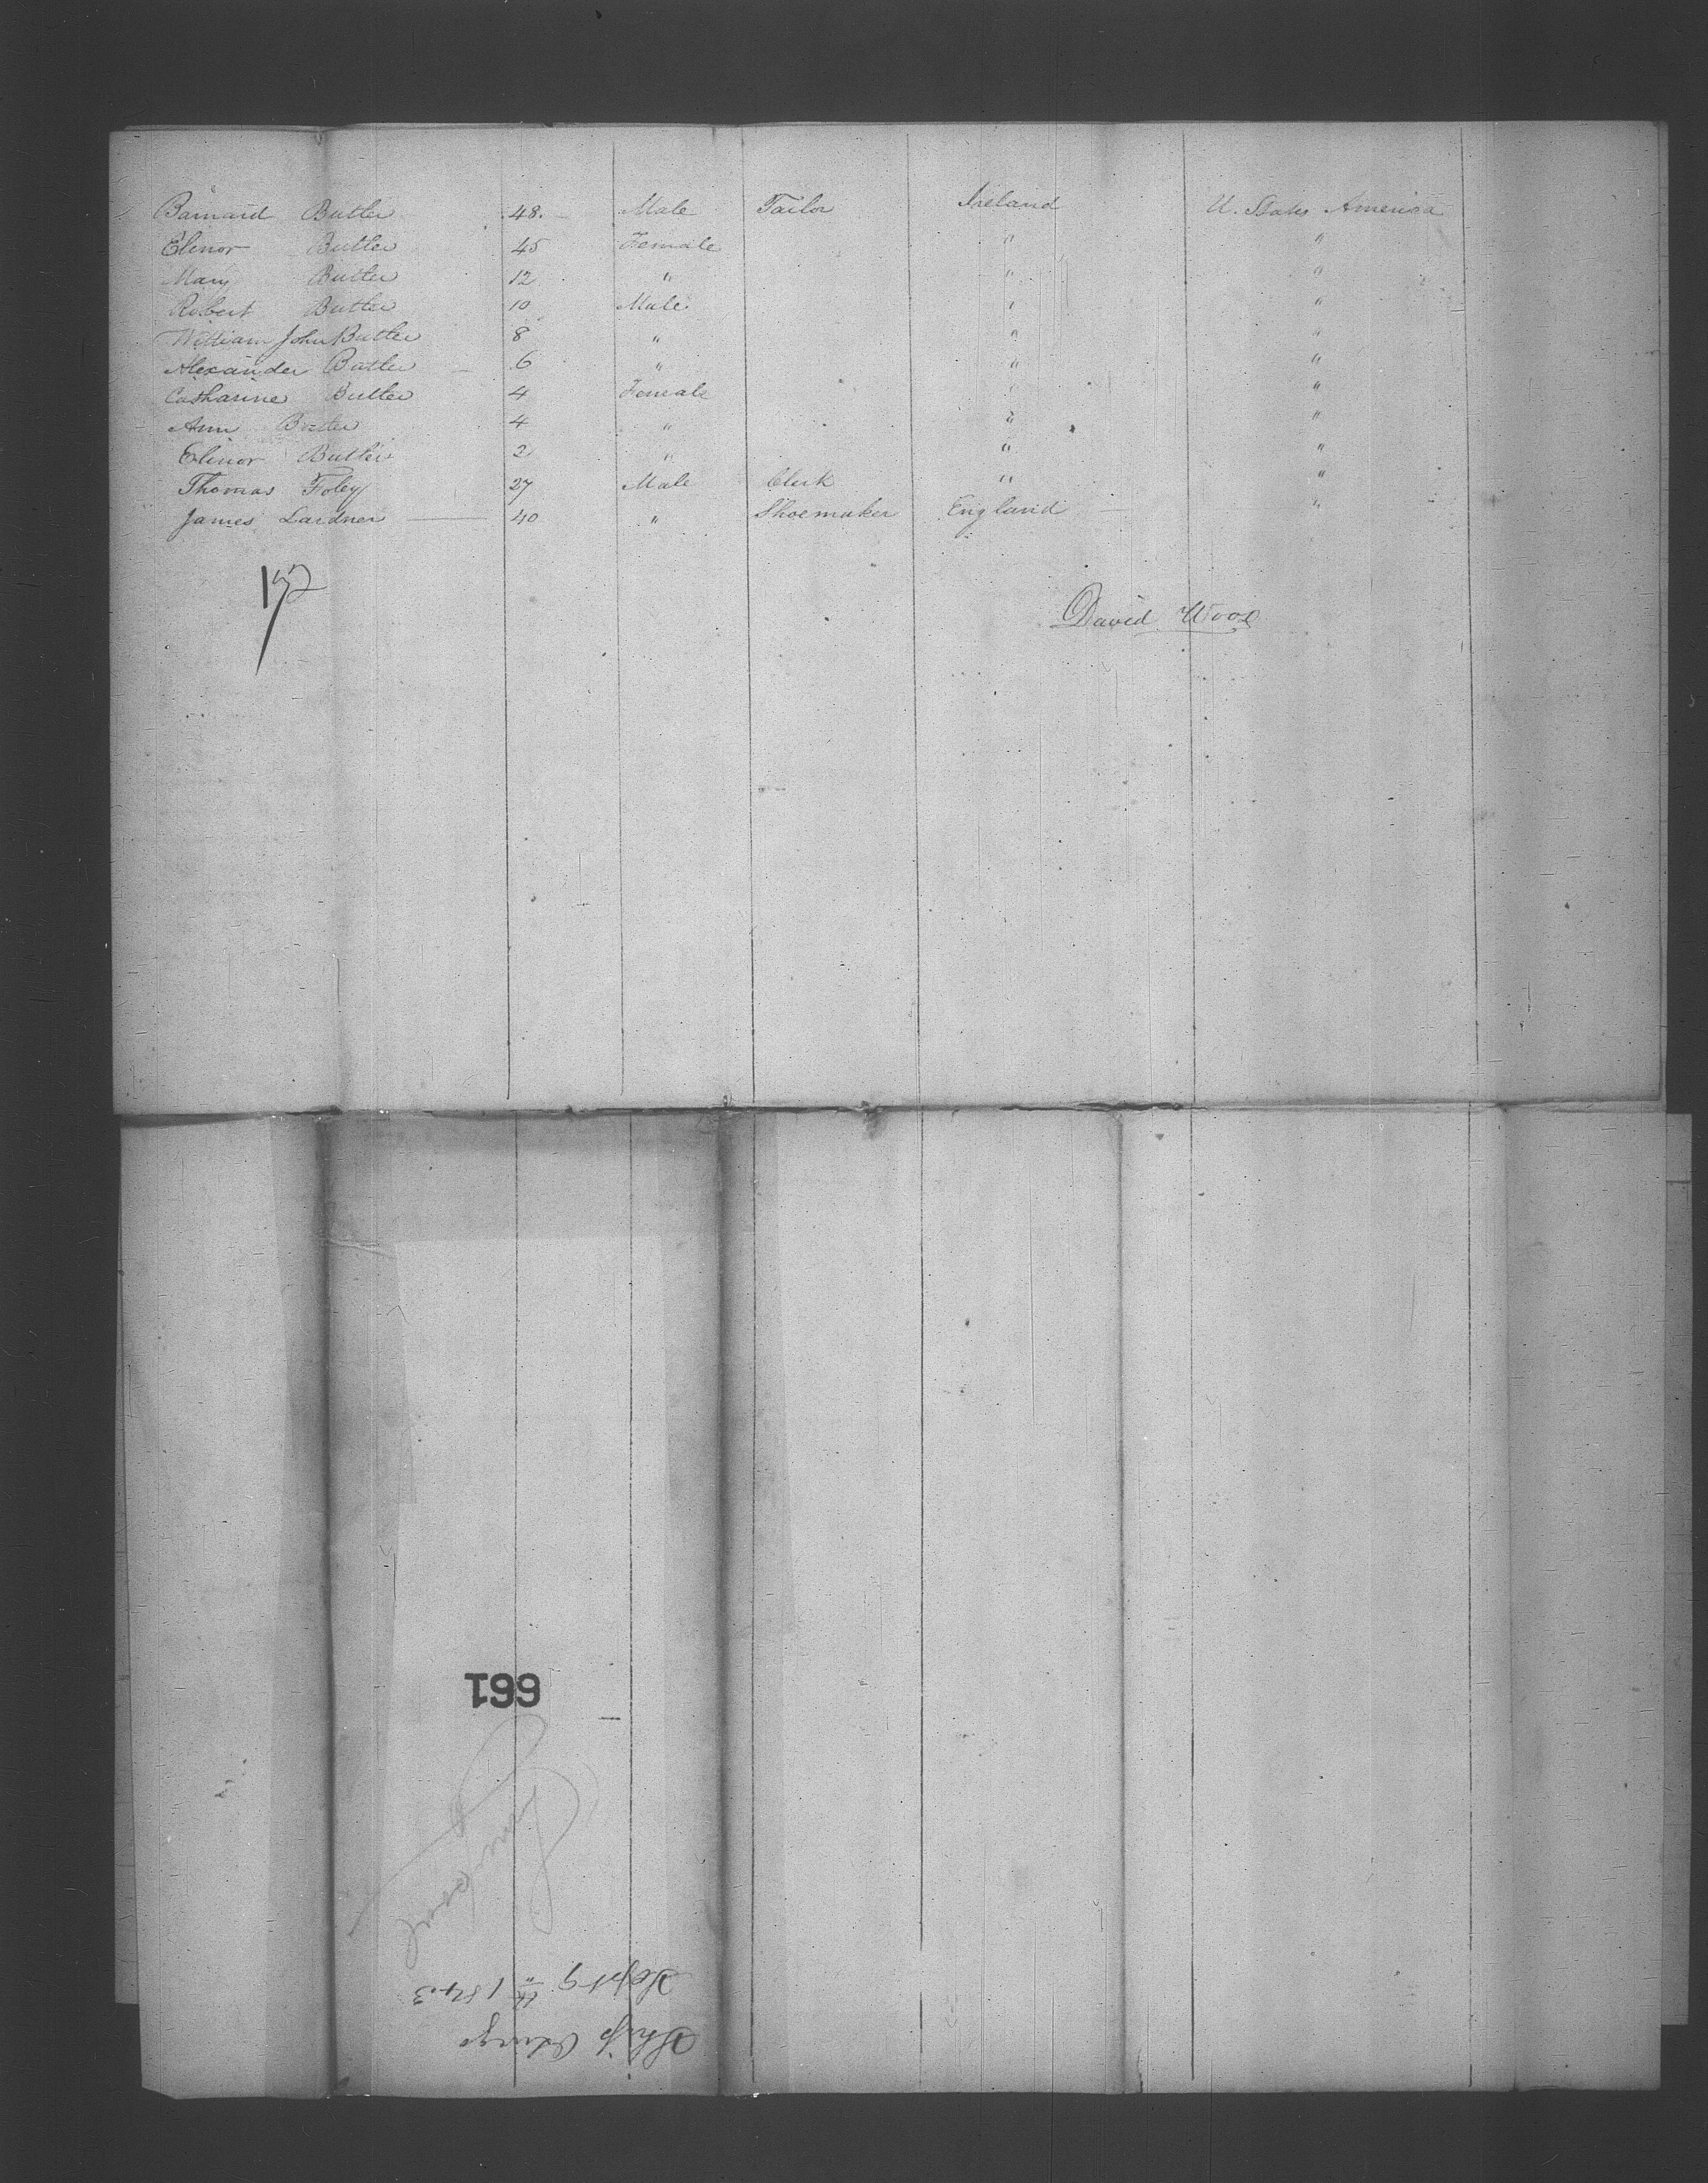 Barnard Butler 48. Male Tailor Ireland U. States America
Elenor Butler 45 Female " "
Mary Butler 12 " " "
Robert Butler 10 Male " "
William John Butler 8 " " "
Alexander Butler 6 " " "
Catharine Butler 4 Female " "
Ann Butler 4 " " "
Elinor Butler 2 " " "
Thomas Foley 27 Male Clerk " "
James Lardner 40 " Shoemaker England "
David Wood
661
Liverpool
Ship Oswego
Sept 9th 1843